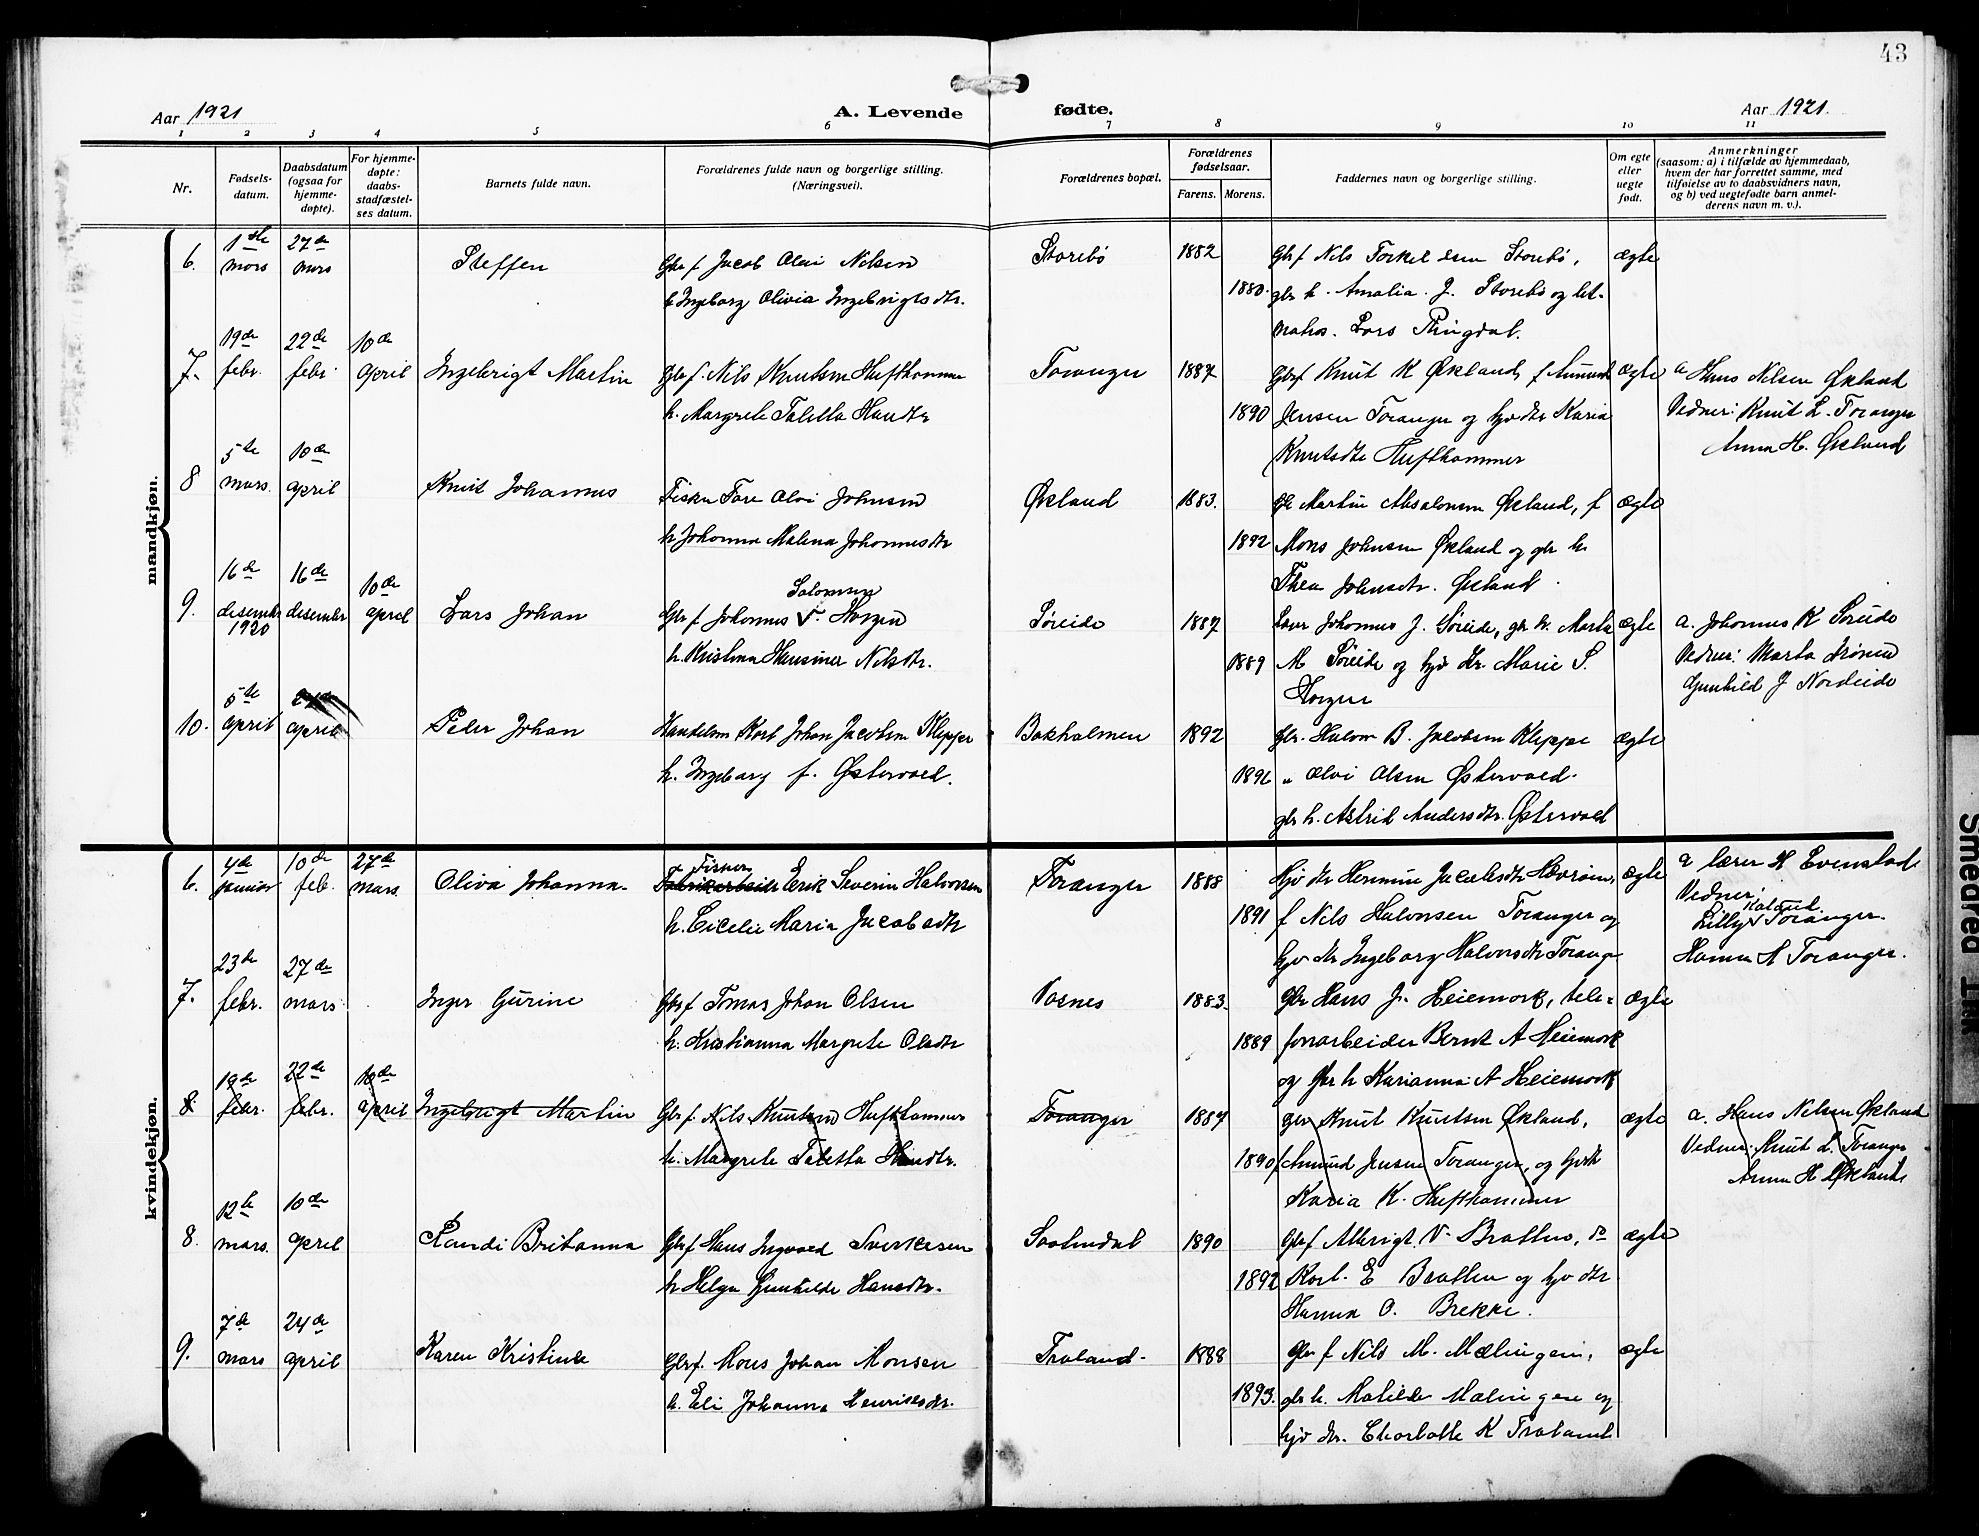 43
Aar 1921
A. Levende fødte.
Aar 1921.
1 2 3 4 5 6 7 8 9 10 11
Nr.
Fødsels-
datum.
Daabsdatum
(ogsaa for
hjemme-
døpte).
For hjemme-
døpte:
daabs-
stadfæstel-
ses datum.
Barnets fulde navn.
Forældrenes fulde navn og borgerlige stilling.
(Næringsvei).
Forældrenes bopæl.
Forældrenes
fødselsaar.
Farens. Morens.
Faddernes navn og borgerlige stilling.
Om egte
eller
uegte
født.
Anmerkninger
(saasom: a) i tilfælde av hjemmedaab,
hvem der har forrettet samme, med
tilføielse av to daabsvidners navn,
og b) ved uegtefødte barn anmel-
derens navn m. v.).
mandkjøn.
6. 1ste mars 27de mars Steffen Gbr f Jacob Olai Nilsen Storebø 1882 Gbr f Nils Torkelsen Storebø, ægte
h Ingeborg Olivia Ingebrigtsdtr. 1880. gbr h. Amalia J. Storebø og let-
matros. Lars Tringdal.
7. 19de febr. 22de febr. 10de april Ingebrigt Martin Gbr f. Nils Knutsen Hufthammer Toranger 1887 Gbr f Knut K Økland, f Amund ægte a Hans Nilsen Økland
h. Margrete Taletta Hansdtr 1890 Jensen Toranger og hjv dtr Karia Vidner: Knut L. Toranger
Knutsdtr Hufthammer Anna H. Økland
8 5te mars. 10de april Knut Johannes Fisker Tore Olai Johnsen Økland 1883. Gbr Martin Absalonsen Økland, f ægte
h Johanna Malena Johannesdtr 1892 Mons Johnsen Økland og gbr h.
Thea Johnsdtr. Økland.
9. 16de desember 1920 16de desember 10de april Lars Johan Gbr f Johannes V. Salomonsen Horgen Søreide 1887 Johannes J. Søreide, gbr h. Marta ægte a. Johannes K Søreide
h. Kristina Hansine Nilsdtr. 1889 M Søreide og hjv dtr. Marie S. Vidner: Marta Drønen
Horgen Gunhild J Nordeide
10. 5te april april Peder Johan Handelsm Karl Johan Jacobsen Kleppe Bakholmen 1892 Gbr. Halvor B. Jacobsen Kleppe ægte
h. Ingeborg f. Østervold. 1896 " Olai Olsen Østervold.
gbr h. Astrid Andersdtr. Østervold
kvindekjøn.
6. 4de januar 10de feb. 27de mars. Oliva Johanna. Fisker Fabrikarbeider Erik Severin Halvorsen Toranger 1888 Hjv dtr Hermine Jacobsdtr Hevrøen, ægte a lærer H Evenstad
h. Cicelie Maria Jacobsdtr 1891 f Nils Halvorsen Toranger og Vidner:
Lilly Kaland Toranger.
hjv dtr Ingeborg Halvorsdtr Toranger Hanna H Toranger.
7. 23de febr. 27de mars Inger Gurine Gbr f Tomas Johan Olsen Vasnes 1883. Gbr Hans J. Heiemork, tele- ægte
h. Kristianna Margrete Olsdtr 1889 fonarbeider Bernt A Heiemork
og Gbr h Karianna A Heiemork
8 19de febr. 22de febr. 10de april Ingebrigt Martin Gbr f. Nils Knutsen Hufthammer Toranger 1887 gbr Knut Knutsen Økland, ægte a. Hans Nilsen Økland
h. Margrete Taletta Hansdtr. 1890 f Amund Jensen Toranger, og hjv dtr Vidner: Knut L. Toranger
Karia K. Hufthammer Anna H Økland
8. 12te mars. 10de april Randi Britanna Gbr f Hans Ingvald Sverkesen 1890 Gbr f Albrigt V. Bratten, do ægte
h Helga Gunhilde Hansdtr. 1892 Karl. E Bratten og hjv dtr
Hanna O. Brekke.
9. 7de mars 24de april Karen Kristine Gbr f. Mons Johan Monsen Troland. 1888 gbr f Nils M. Mælingen, ægte
h. Eli Johanna Henriksdtr. 1893. gbr h. Matilde Mælingen og
hjv dtr. Charlotte K Troland
Smeared Ink